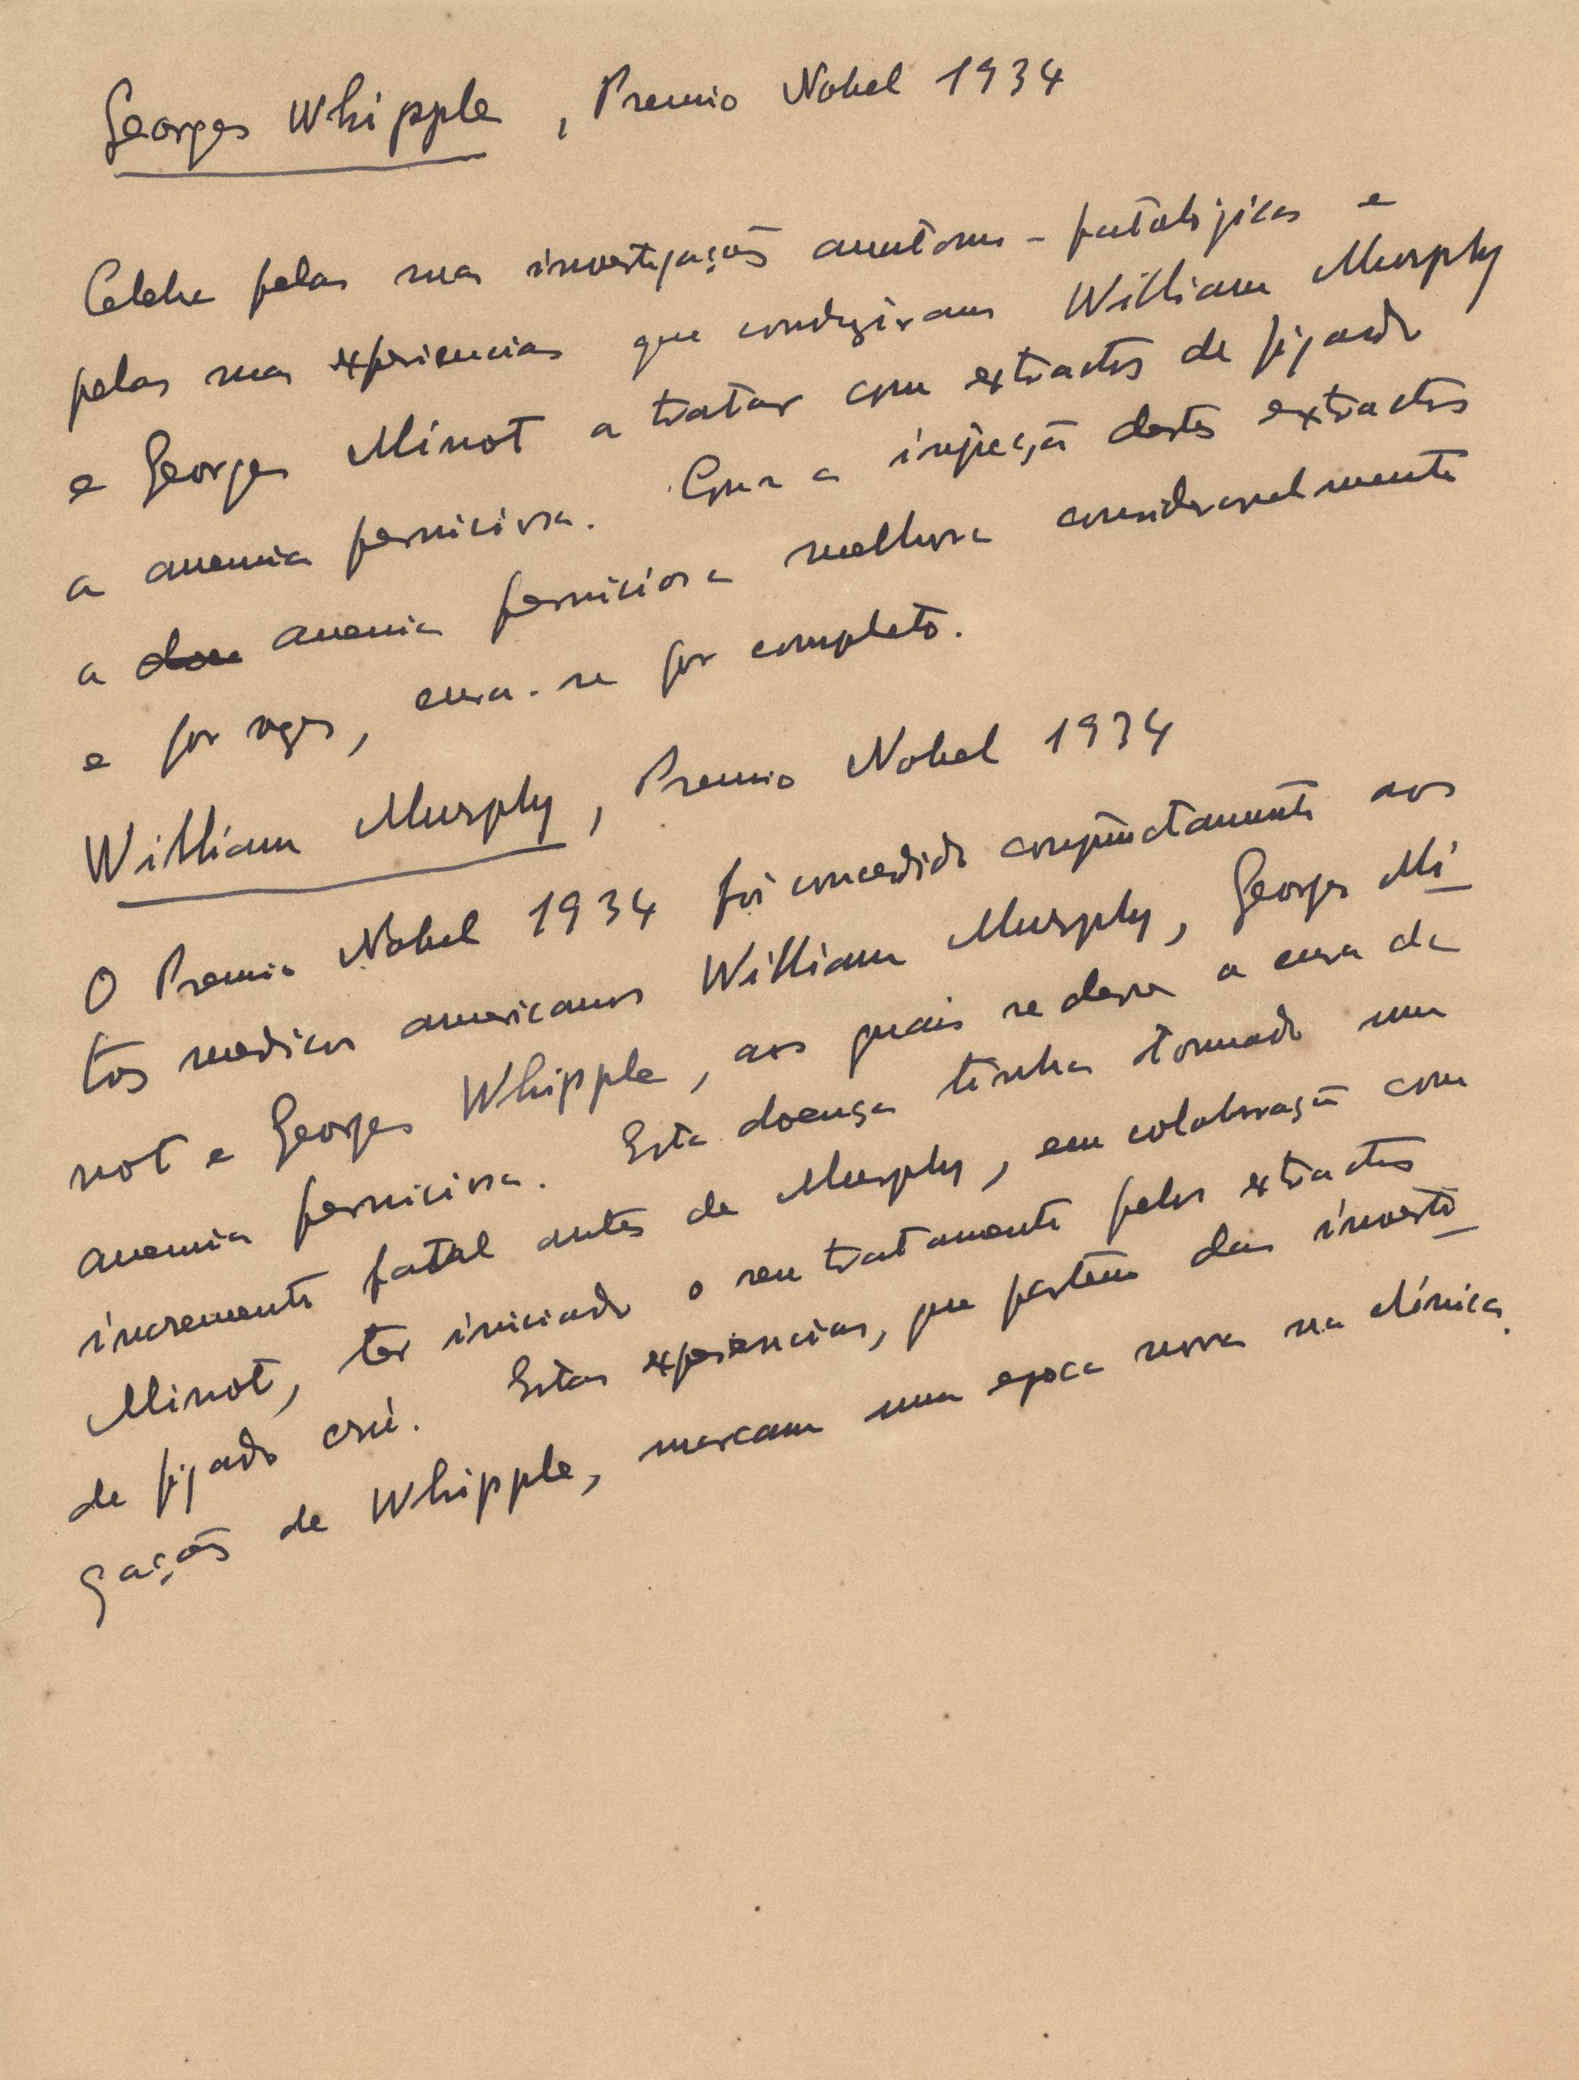 Georges Whipple, Premio Nobel 1934
Celebre pelas suas investigações anatomo-patologicas e
pelas suas experiencias que conduziram William Murphy
e Georges Minot a tratar com extractos de figado
a anemia perniciosa. Com a injecção destes extractos
a doe anemia perniciosa melhora consideravelmente
e por vezes, cura-se por completo.
William Murphy, Premio Nobel 1934
O Premio Nobel 1934 foi concedido conjuntamente aos
tos medicos americanos William Murphy, Georges Mi
not e Georges Whipple, aos quais se deve a cura da
anemia perniciosa. Esta doença tinha tomado um
incremento fatal antes de Murphy, em colaboração com
Minot, ter iniciado o seu tratamento pelos extractos
de figado crú. Estas experiencias, que partem das investi
gações de Whipple, marcam uma epoca nova na clínica.